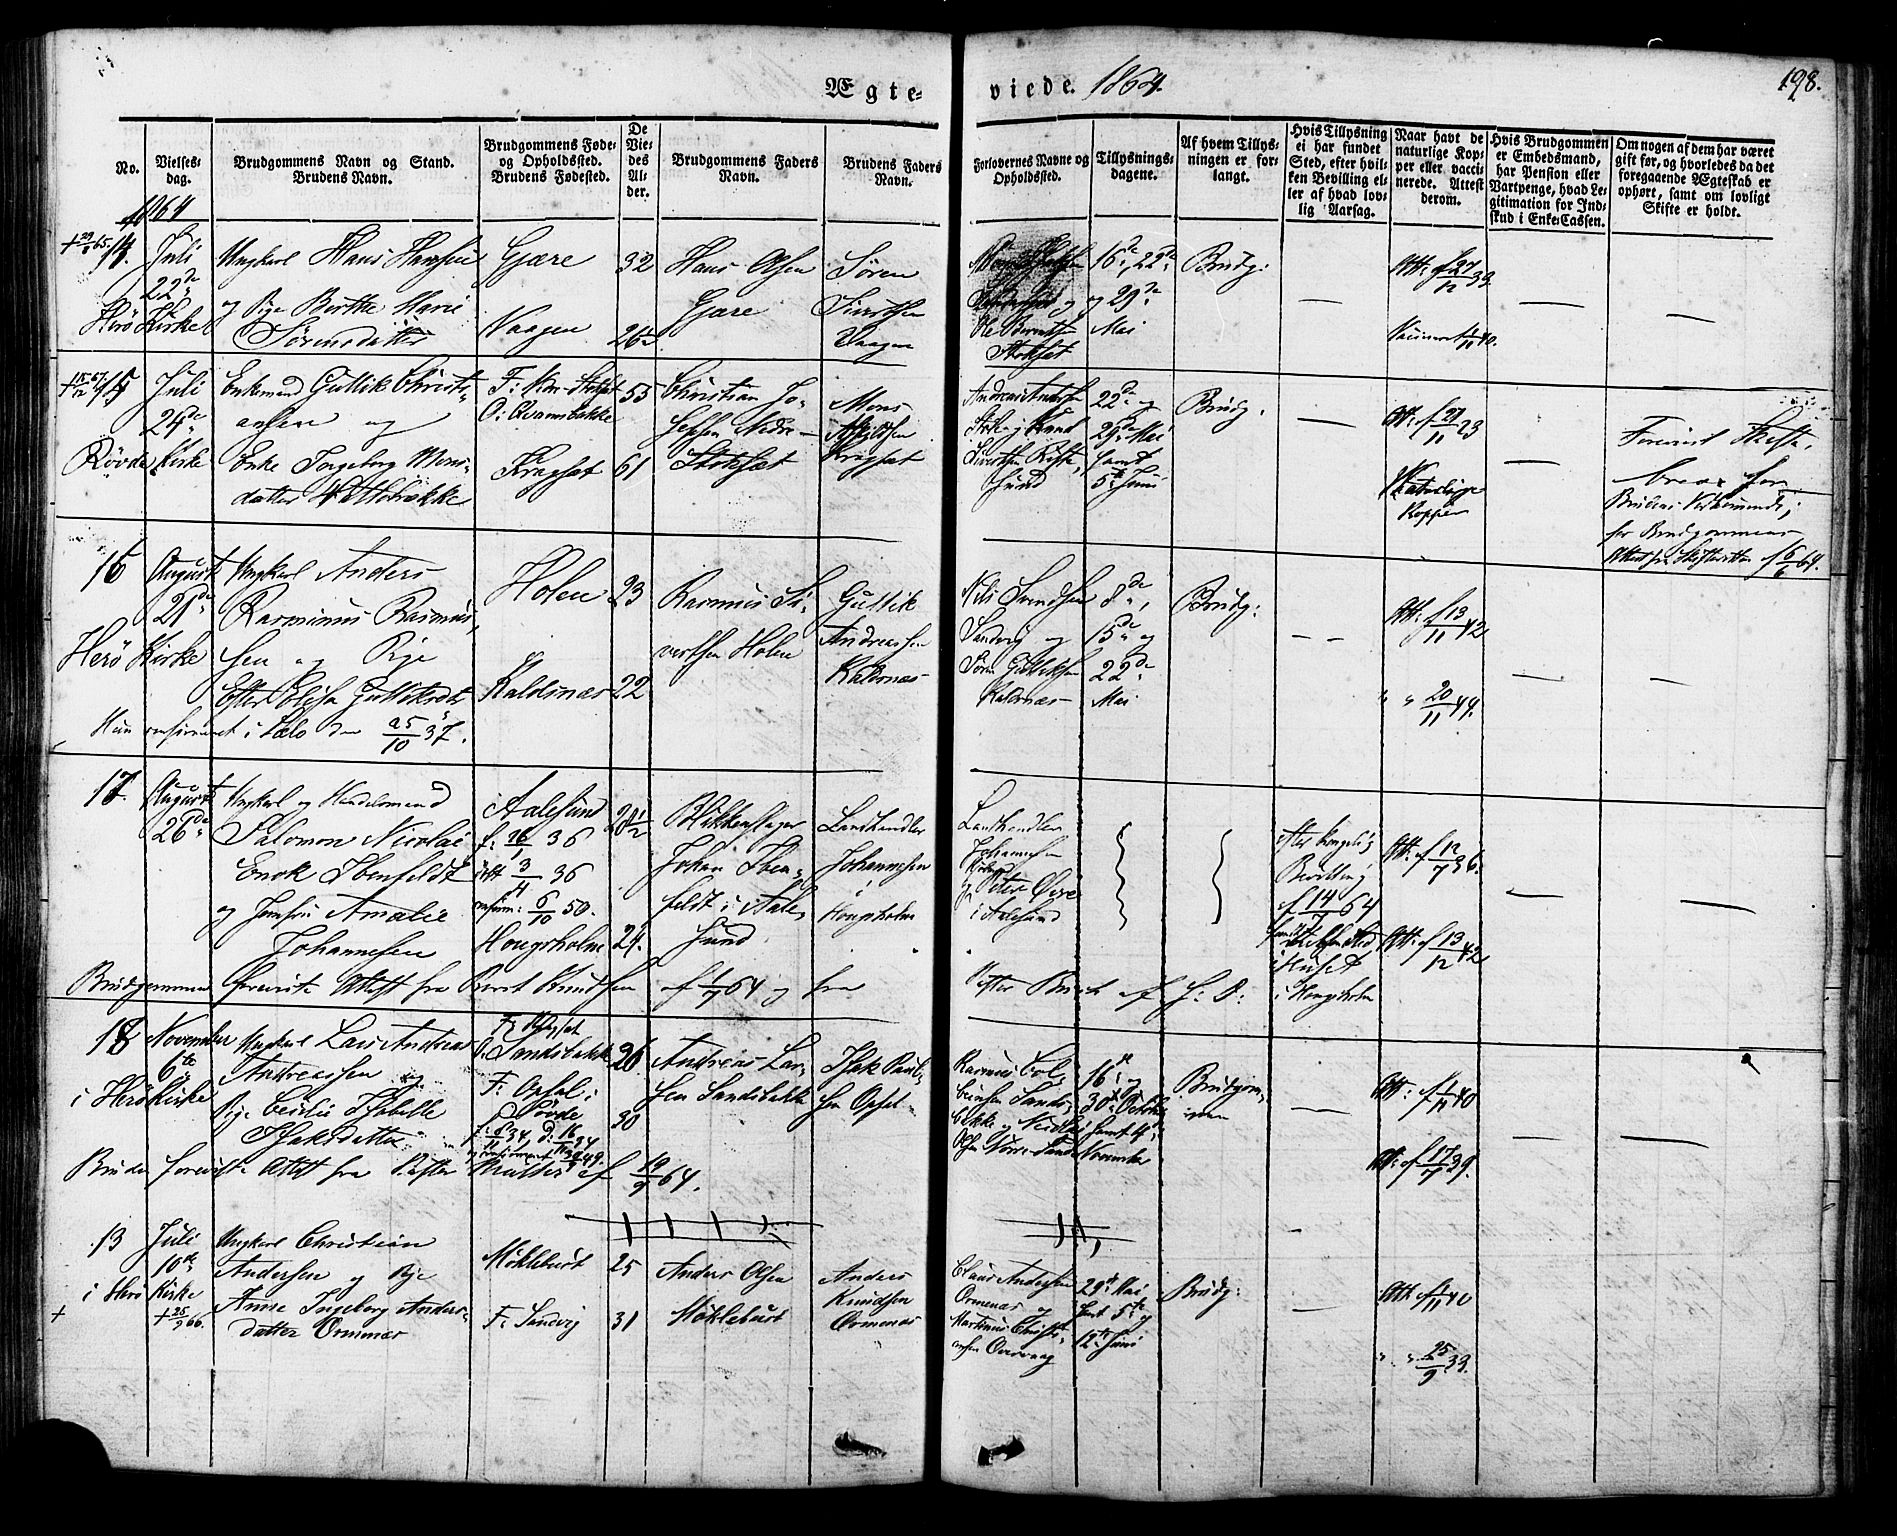 Ægte-
viede. 1864.
198.
No.
Vielses-
dag.
Brudgommens Navn og Stand.
Brudens Navn.
Brudgommens Føde-
og Opholdssted.
Brudens Fødested.
De
Vie-
des
Al-
der.
Brudgommens Faders
Navn.
Brudens Faders
Navn.
Forlovernes Navne og
Opholdssted.
Tillysnings-
dagene.
Af hvem Tillys-
ningen er for-
langt.
Hvis Tillysning
ei har fundet
Sted, efter hvil-
ken Bevilling el-
ler af hvad lov-
lig Aarsag.
Naar havt de
naturlige Kop-
per eller vacci-
nerede. Attest
derom.
Hvis Brudgommen
er Embedsmand,
har Pension eller
Vartpenge, hvad Le-
gitimation for Ind-
skud i Enke-Cassen.
Om nogen af dem har været
gift før, og hvorledes da det
foregaaende Ægteskab er
ophørt, samt om lovligt
Skifte er holdt.
1864
14.
Juli
22de
Herø Kirke
Ungkarl Hans Hansen
og Pige Berthe Marie
Sørensdatter
Gjære
Vaagen
32
26½
Hans Olsen
Gjære
Søren
Sivertsen
Vaagen
Ole Berntsen
Stoksæt
16de, 22de
og 29de
Mai
Brudg:
Att: af 27/12 33.
Vaccineret 40.
15
Juli
24de
Røvde Kirke
Enkemand Guttik Christi-
ansen og
Enke Ingeborg Mons-
datter
F: Ndr. Stoksæt
O: Qvamsbakke
Kragsæt
55
61
Christian Jo-
sephsen Nedre-
Stoksæt
Mons
Kragsæt
Andreas
og Knud
Sivertsen
22de og
29de Mai
samt
5te Juni
Brudg.
Att: af 29/11 23
Naturlige
Kopper
Forevist Skifte-
brev for
Brudens Vedkommende;
for Brudgommens
Attest fra Skifteretten af 6/6 64.
16
August
21de
Herø Kirke
Ungkarl Anders
Rasmus Rasmus-
sen og Pige
Ester Elisa Gulliksdtr
Holen
Kaldsnæs
23
22
Rasmus Si-
vertsen Holen
Guttik
Andreassen
Kaldsnæs
Nils Svendsen
Sandvig og
Søren Guttiksen
Kaldsnæs
8de,
15de og
22de
Mai
Brudg:
Att: af 13/11 42
" " 20/11 49.
Hun confirmeret i den 25/10 37.
17.
August
26de
Ungkarl og Handelsmand
Salomon Nicolai
Enok Ibenfeldt
og Jomfru Amalie
Johannesen
Aalesund
f: 26/1 36
døbt 3/4 36
confirm: 6/10 50.
Hougsholm
28½
24.
Blikkenslager
Johan Iben-
feldt i Aale-
sund
Landhandler
Johannesen
i
Hougsholm
Landhandler
Johannesen
og Peter Øvre
i Aalesund
efter kongelig
Bevilling
af 14/7 64
i Huset
i Hougsholm
Att: af 12/7 36.
Att: af 13/12 42
Brudgommen foreviste Attest fra Knudsen af 1/7 64 og fra
18
November
6te
i Herø Kirke
Ungkarl Lars Andreas
Andreassen og
Pige Cecilie Isabelle
Isaksdatter
O: Sandsbakk
F: Opsal i
26
30
Andreas Lar-
sen Sandsbakk
Isak Paul-
sen Opsal
Rasmus Col-
beinsen Sands-
bakke og Nicolai
Olsen Nore Sande
16de og
30te October
samt 4de
November
Brudgom-
men
Att: af 1/11 40
Att: af 17/7 39.
Bruden foreviste Attest fra Møller af 19/9 64.
13
Juli
10de
i Herø Kirke
+ 25/9 66.
Ungkarl Christian
Andersen og Pige
Anne Ingeborg Anders-
datter Ormenæs
Møklebust
F: Sandvig
25
31
Anders Olsen
Møklebust
Anders
Knudsen
Ormenæs
Claus Andersen
Ormenæs og
Martinus Christi-
ansen Overvaag
29de Mai
samt 5te og
12te Juni
Brudg:
Att: af 1/11 40
" " 25/9 33.